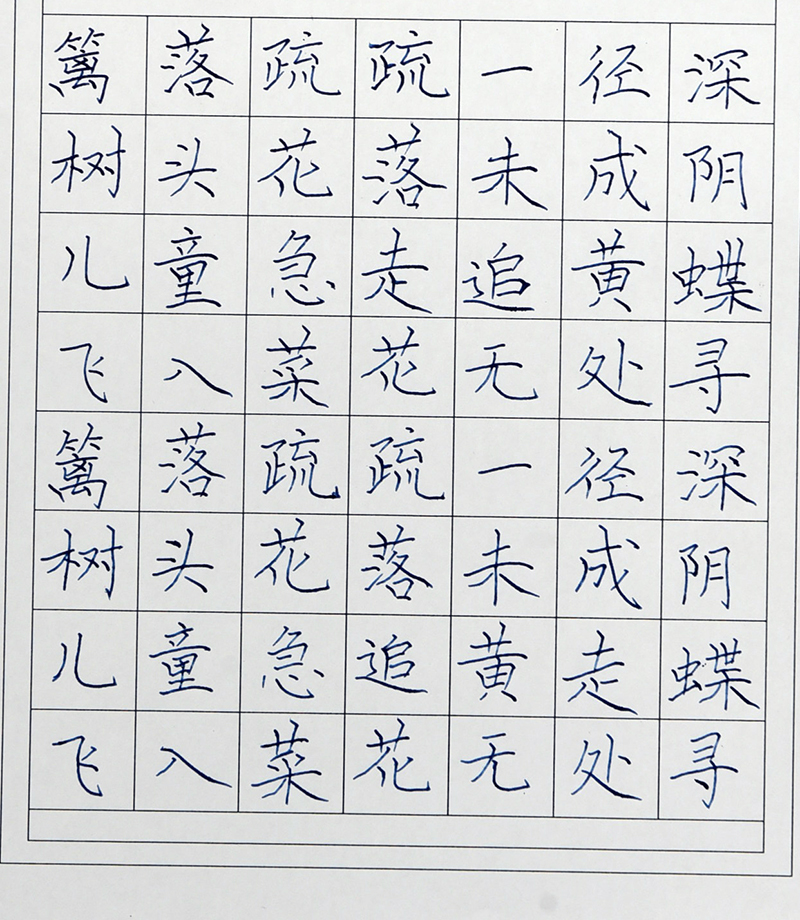 篱落疏疏一径深
树头花落未成阴
儿童急走追黄蝶
飞入菜花无处寻
篱落疏疏一径深
树头花落未成阴
儿童急追黄走蝶
飞入菜花无处寻